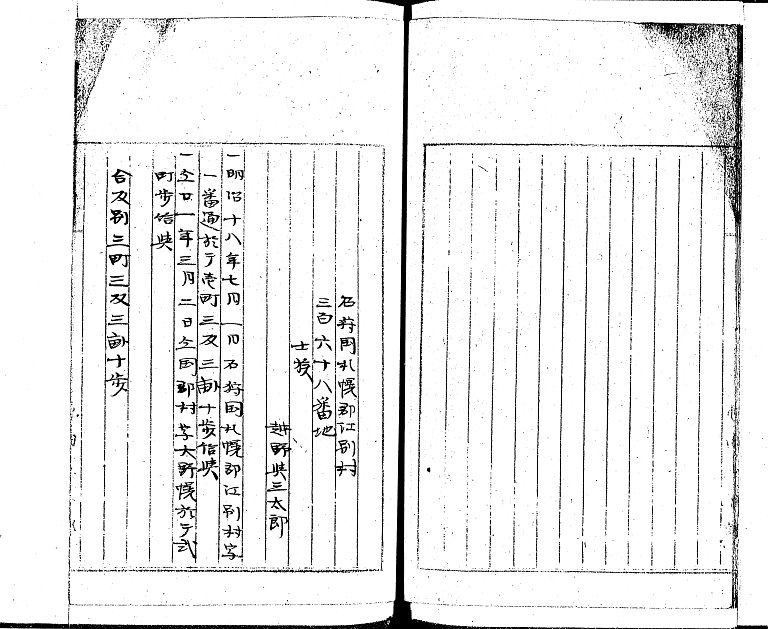 石狩国札幌郡江別村
三百六十八番地
士族
越野与三太郎
一明治十八年七月一日石狩国札幌郡江別村字
一番通ニ於テ壱町三反三畝十歩給与
一仝廿一年三月二日仝国郡村字大野幌ニ於テ弐
町歩給与
合反別三町三反三畝十歩